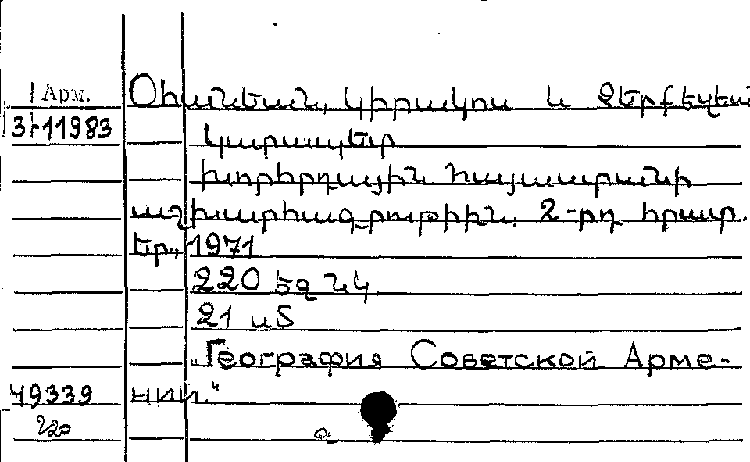 Арм.
Օհանեան, Կիրակոս և Ջերբեզեան
3կ11983
Կարապետ
Խորհրդային Հայաստանի
աշխարհագրութիւն. 2-րդ հրատ.
Եր., 1971
220 եջ նկ
21 սմ
„География Советской Арме-
нии.“
49339